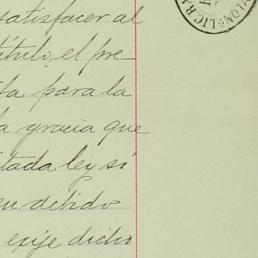 satisfacer al
título, el pre-
para la
gracia que
citada ley si
su debido
exije dicho